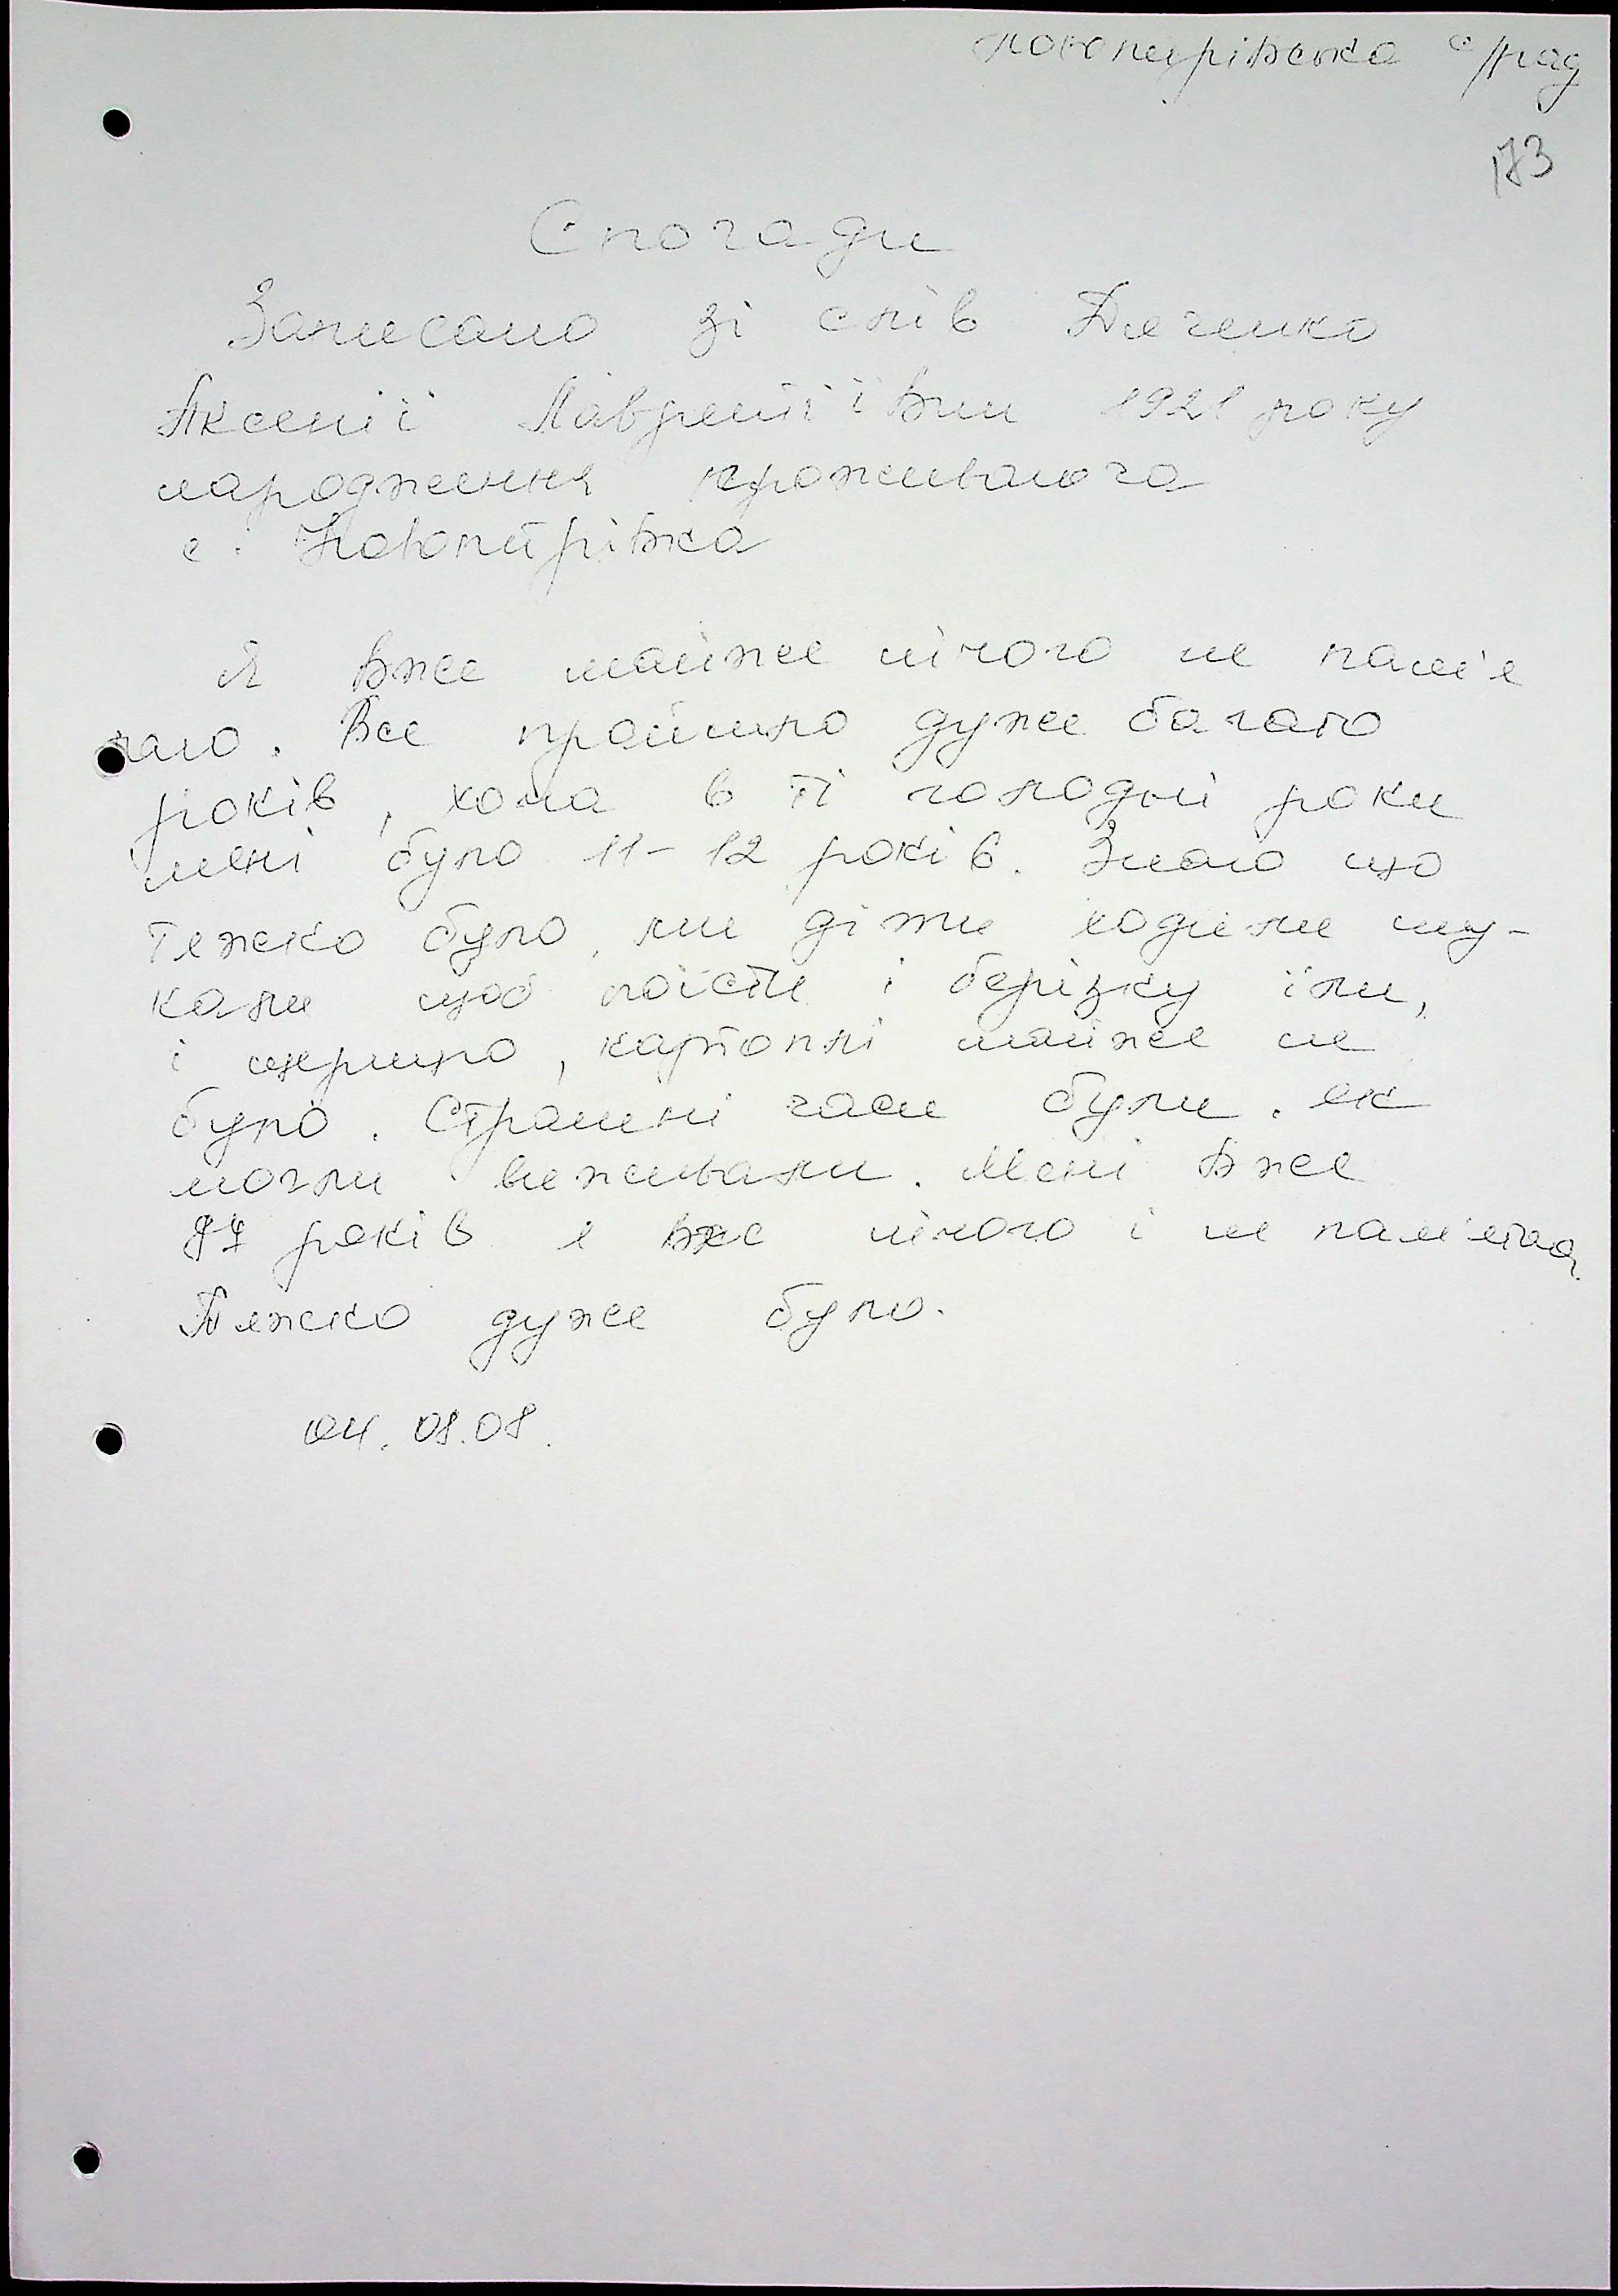 Новопетрівська с/рад
173
Спогади
Записано зі слів Дяченко
Аксенії Лаврентіївни 1921 року
народження проживаюча
с. Новопетрівка
Я вже майже нічого не пам'я
таю. Все пройшло дуже багато
років, хоча в ті голодні роки
мені було 11-12 років. Знаю що
тяжко було, ми діти ходили шу-
кали щоб поїсти і берізку їли,
і , картоплі майже не
було. Страшні часи були. як
могли виживали. Мені вже
87 років я вже нічого і не пам'ятаю,
Тяжко дуже було.
04.08.08.